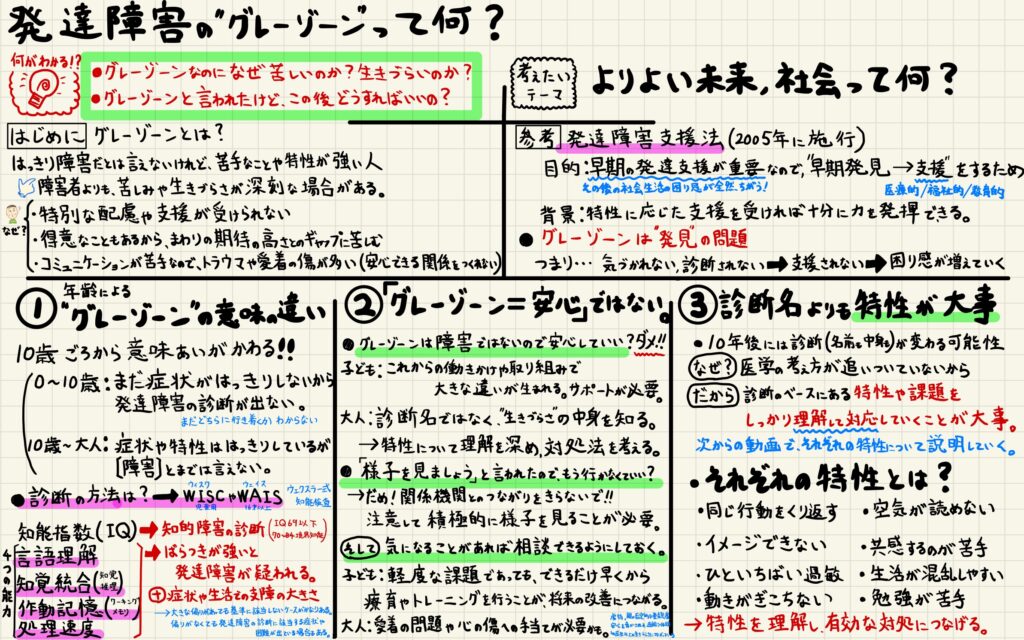 発達障害の"グレーゾーン"って何？
何がわかる!?
●グレーゾーンなのになぜ苦しいのか？生きづらいのか？
●グレーゾーンと言われたけど、この後どうすればいいの？
考えたいテーマ
よりよい未来,社会って何？
はじめに グレーゾーンとは？
はっきり障害だとは言えないけれど、苦手なことや特性が強い人
障害者よりも、苦しみや生きづらさが深刻な場合がある。
なぜ？
・特別な配慮や支援が受けられない
・得意なこともあるから、まわりの期待の高さとのギャップに苦しむ
・コミュニケーションが苦手なので、トラウマや愛着の傷が多い(安心できる関係をつくれない)
参考 発達障害支援法(2005年に施行)
目的:早期の発達支援が重要なので、"早期発見→支援"をするため
その後の社会生活の困り感が全然、ちがう!
医療的/福祉的/教育的
背景:特性に応じた支援を受ければ十分に力を発揮できる。
●グレーゾーンは"発見"の問題
つまり…気づかれない,診断されない➡支援されない➡困り感が増えていく
① 年齢による
"グレーゾーン"の意味の違い
10歳ごろから意味あいがかわる!!
0~10歳:まだ症状がはっきりしないから
発達障害の診断が出ない。
まだどちらに行き着くかわからない
10歳~大人:症状や特性ははっきりしているが
[障害]とまでは言えない。
●診断の方法は？→WISCやWAIS
ウィスク
ウェイス
児童用
16才以上
ウェクスラー式
知能検査
知能指数(IQ)→知的障害の診断(IQ69以下
4つの能力
言語理解
知覚統合(知覚推理)
作動記憶(ワーキングメモリ)
処理速度
→ばらつきが強いと
発達障害が疑われる。
⊕症状や生活その支障の大きさ
②「グレーゾーン=安心」ではない。
●グレーゾーンは障害ではないので安心していい？ダメ!!
子ども:これからの働きかけや取り組みで
大きな違いが生まれる。サポートが必要。
大人:診断名ではなく、"生きづらさ"の中身を知る。
→特性について理解を深め,対処法を考える。
●「様子を見ましょう」と言われたので、もう行かなくていい？
→だめ!関係機関とのつながりをきらないで!!
注意して積極的に様子を見ることが必要。
そして 気になることがあれば相談できるようにしておく。
子ども:軽度な課題であっても、できるだけ早くから
療育やトレーニングを行うことが、将来の改善につながる。
大人:愛着の問題や心の傷への手当てが必要かも。
③診断名よりも特性が大事
・10年後には診断(名前や中身)が変わる可能性
なぜ？ 医学の考え方が追いついていないから
だから 診断のベースにある特性や課題を
しっかり理解して対応していくことが大事。
次からの動画で、それぞれの特性について説明していく。
・それぞれの特性とは？
・同じ行動をくり返す ・空気が読めない
・イメージできない ・共感するのが苦手
・ひといちばい過敏 ・生活が混乱しやすい
・動きがぎこちない ・勉強が苦手
→特性を理解し、有効な対処につなげる。